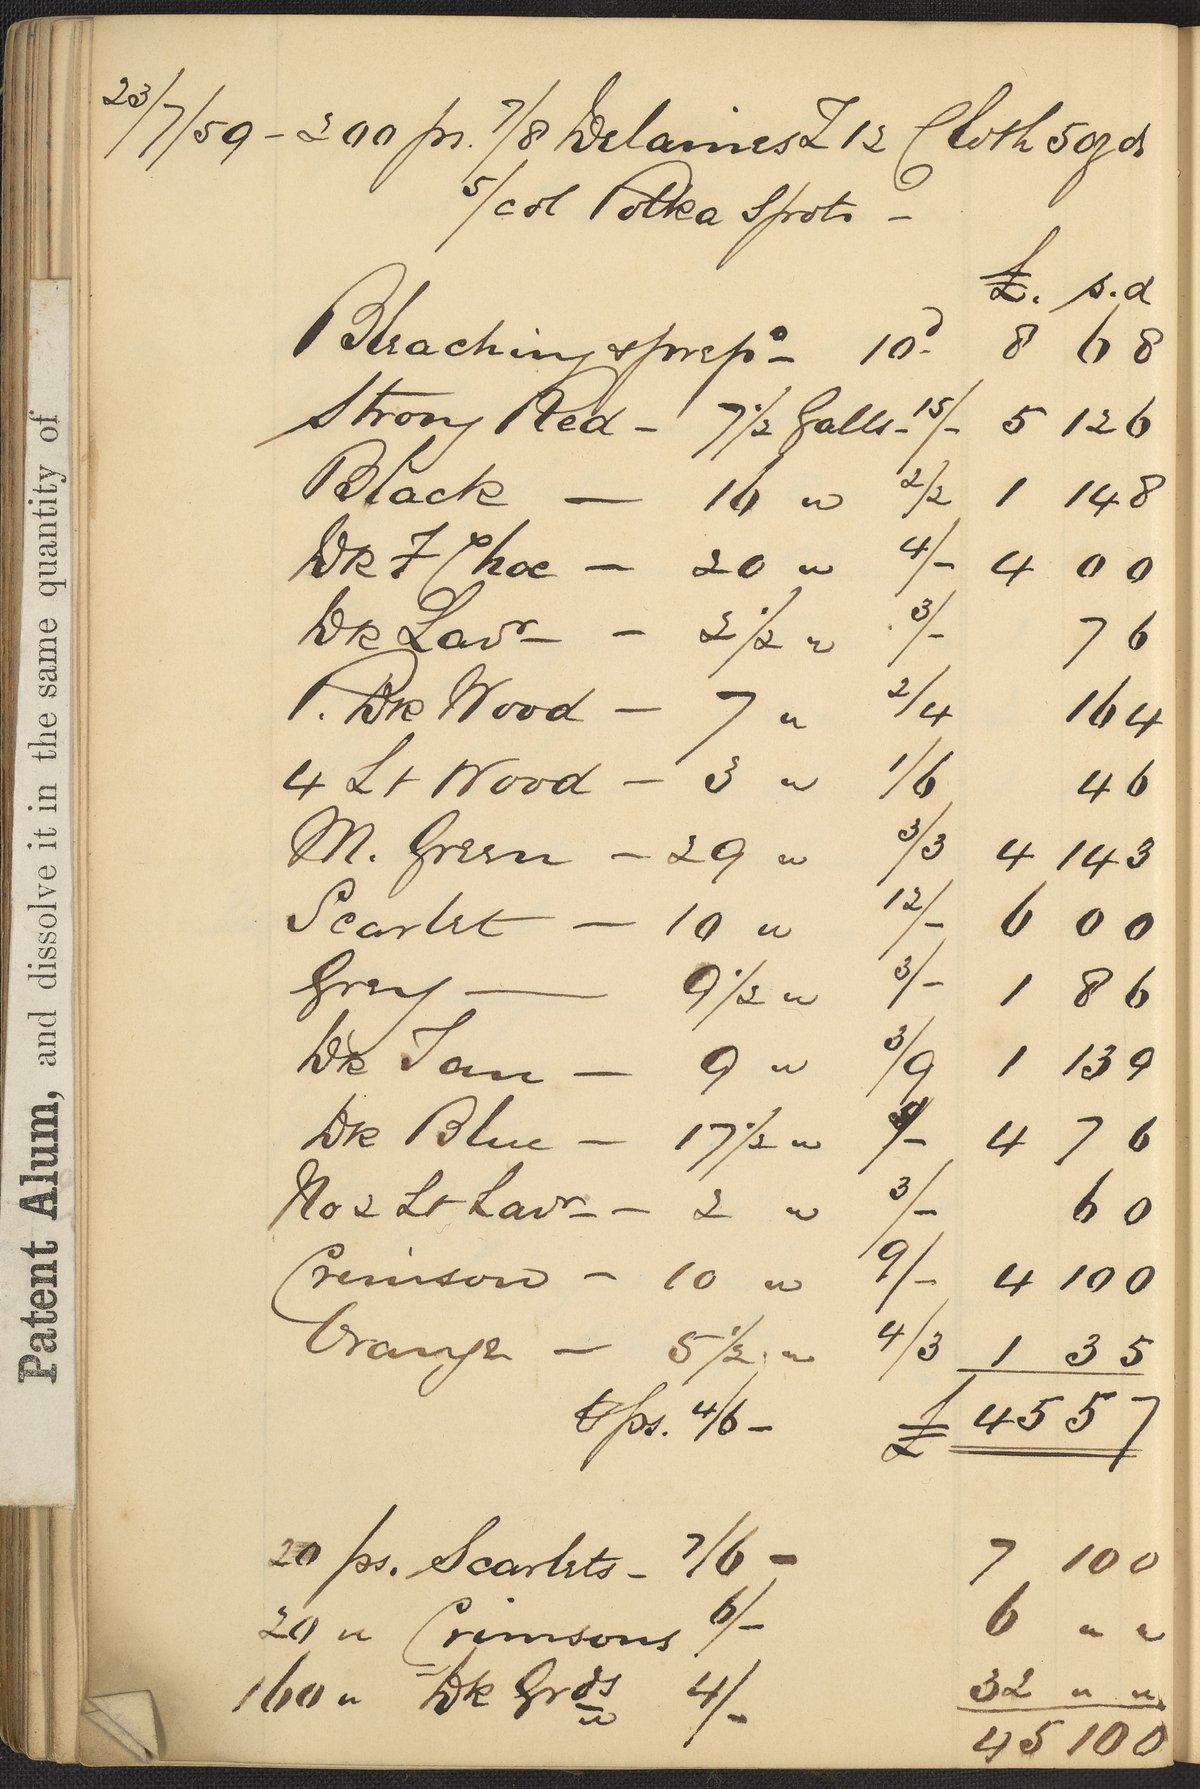 23/7/59 - 200 ps. 7/8 Delaines Z 12 Cloth 50yds
5/col Polka Spots -
£. s. d
Bleaching & prepn - 10d - 8 6 8
Strong Red - 7 1/2 Galls - 15/- 5 12 6
Black - 16 " 2/2 1 14 8
Dk F Choc - 20 " 4/- 4 0 0
Dk Lavr - - 2 1/2 " 3/- 7 6
P. Dk Wood - 7 " 2/4 16 4
4 Lt Wood - 3 " 1/6 4 6
M. Green - 29 " 3/3 4 14 3
Scarlet - 10 " 12/- 6 0 0
Grey - 9 1/2 " 3/- 1 8 6
Dk Tan - 9 " 3/9 1 13 9
Dk Blue - 17 1/2 " 5/- 4 7 6
No 2 Lt Lavr - - 2 " 3/- 6 0
Crimson - 10 " 9/- 4 10 0
Orange - 5 1/2 " 4/3 1 3 5
ps. 4/6 - £ 45 5 7
20 ps. Scarlets - 7/6 - 7 10 0
20 " Crimsons 6/- 6 " "
160 " Dk Grds 4/- 32 " "
45 10 0
Patent Alum, and dissolve it in the same quantity of